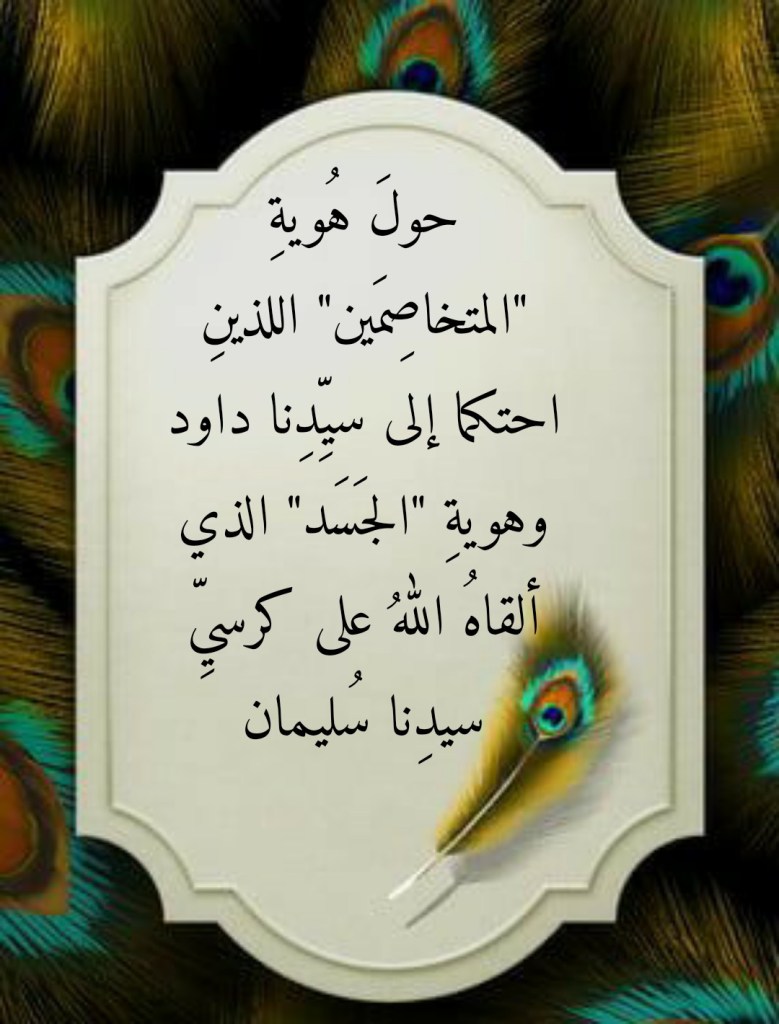 حولَ هُويةِ
"المتخاصِمَين" اللذينِ
احتكما إلى سيِّدِنا داود
وهويةِ "الجَسَد" الذي
ألقاهُ اللهُ على كرسيِّ
سيدِنا سُليمان